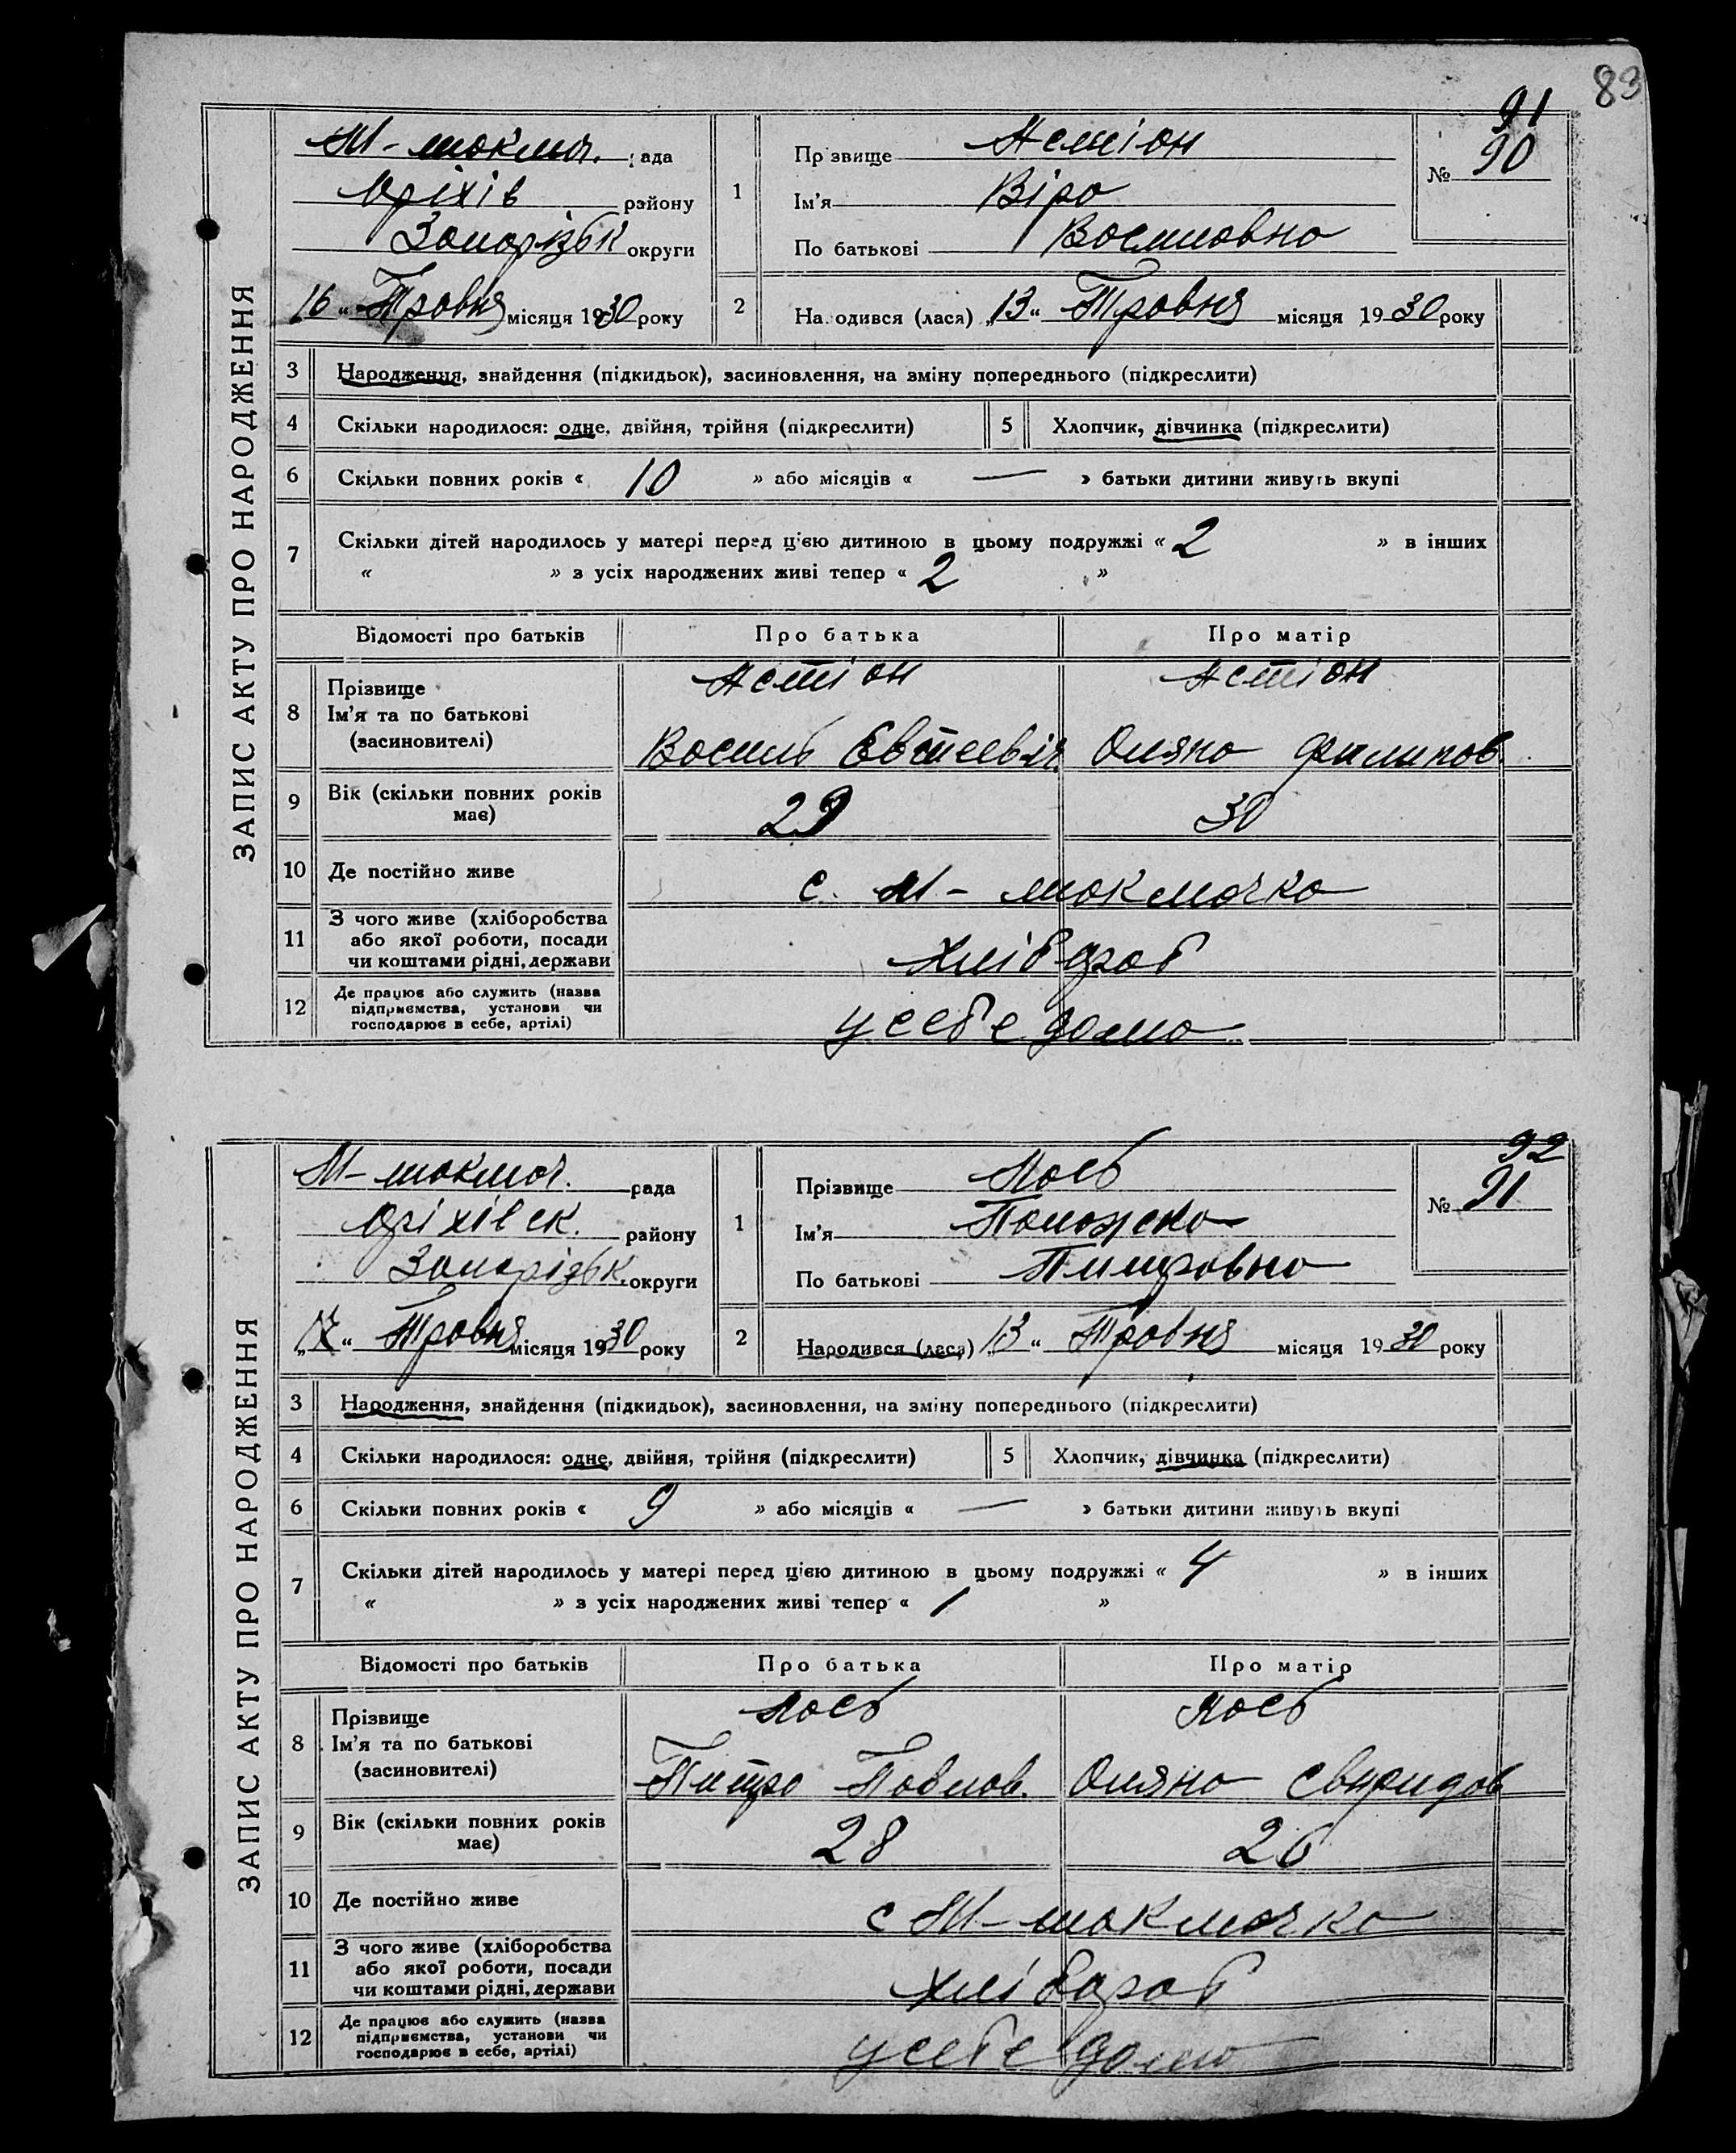 83
ЗАПИС АКТУ ПРО НАРОДЖЕННЯ
М-токмач. рада
Оріхів району
Запорізьк округи
„16“ Травня місяця 1930 року
1
Прізвище Астіон
Ім'я Віра
По батькові Василовна
91
№ 90
2
Народився (лася) „13“ Травня місяця 1930 року
3 Народження, знайдення (підкидьок), засиновлення, на зміну попереднього (підкреслити)
4 Скільки народилося: одне, двійня, трійня (підкреслити) 5 Хлопчик, дівчинка (підкреслити)
6 Скільки повних років « 10 » або місяців « — » батьки дитини живуть вкупі
7 Скільки дітей народилось у матері перед цією дитиною в цьому подружжі « 2 » в інших
« » з усіх народжених живі тепер « 2 »
Відомості про батьків Про батька Про матір
8 Прізвище Астіон Астіон
Ім'я та по батькові
(засиновителі) Василь Євтеевіч Оляна Филипов.
9 Вік (скільки повних років
має) 29 30
10 Де постійно живе с. М-токмачка
11 З чого живе (хліборобства
або якої роботи, посади
чи коштами рідні, держави Хлібороб
12 Де працює або служить (назва
підприємства, установи чи
господарює в себе, артілі) у себе дома
ЗАПИС АКТУ ПРО НАРОДЖЕННЯ
М-токмач. рада
Оріхівск. району
Запорізьк. округи
„17“ Травня місяця 1930 року
1
Прізвище Лось
Ім'я Палажка
По батькові Питровна
92
№ 91
2
Народився (лася) „13“ Травня місяця 1930 року
3 Народження, знайдення (підкидьок), засиновлення, на зміну попереднього (підкреслити)
4 Скільки народилося: одне, двійня, трійня (підкреслити) 5 Хлопчик, дівчинка (підкреслити)
6 Скільки повних років « 9 » або місяців « — » батьки дитини живуть вкупі
7 Скільки дітей народилось у матері перед цією дитиною в цьому подружжі « 4 » в інших
« » з усіх народжених живі тепер « 1 »
Відомості про батьків Про батька Про матір
8 Прізвище Лось Лось
Ім'я та по батькові
(засиновителі) Питро Павлов. Оляна Свиридов
9 Вік (скільки повних років
має) 28 26
10 Де постійно живе с М-токмачка
11 З чого живе (хліборобства
або якої роботи, посади
чи коштами рідні, держави Хлібороб
12 Де працює або служить (назва
підприємства, установи чи
господарює в себе, артілі) у себе дома